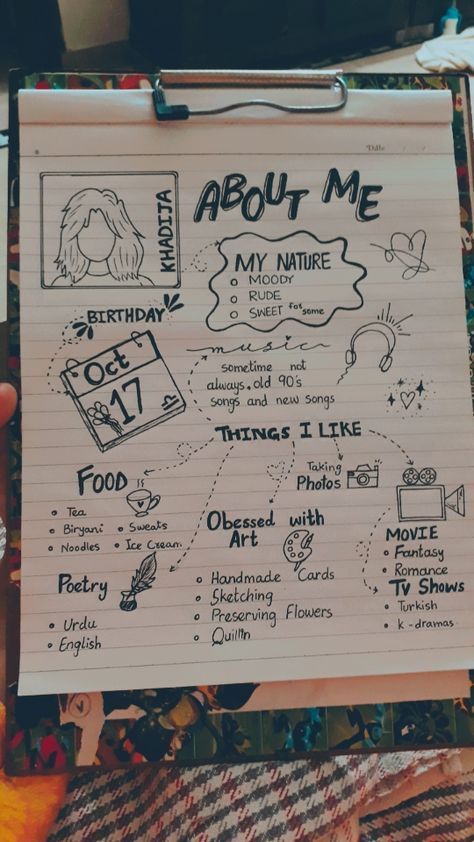 Date / /
ABOUT ME
KHADIJA
MY NATURE
MOODY
RUDE
SWEET for some
BIRTHDAY
Oct
17
music
sometime not
always. old 90's
songs and new songs
THINGS I LIKE
FOOD
Tea
Biryani
Noodles
Sweats
Ice Cream
Taking
Photos
Obessed with
Art
Handmade Cards
Sketching
Preserving Flowers
MOVIE
Fantasy
Romance
TV SHOWS
Turkish
k-dramas
Poetry
Urdu
English